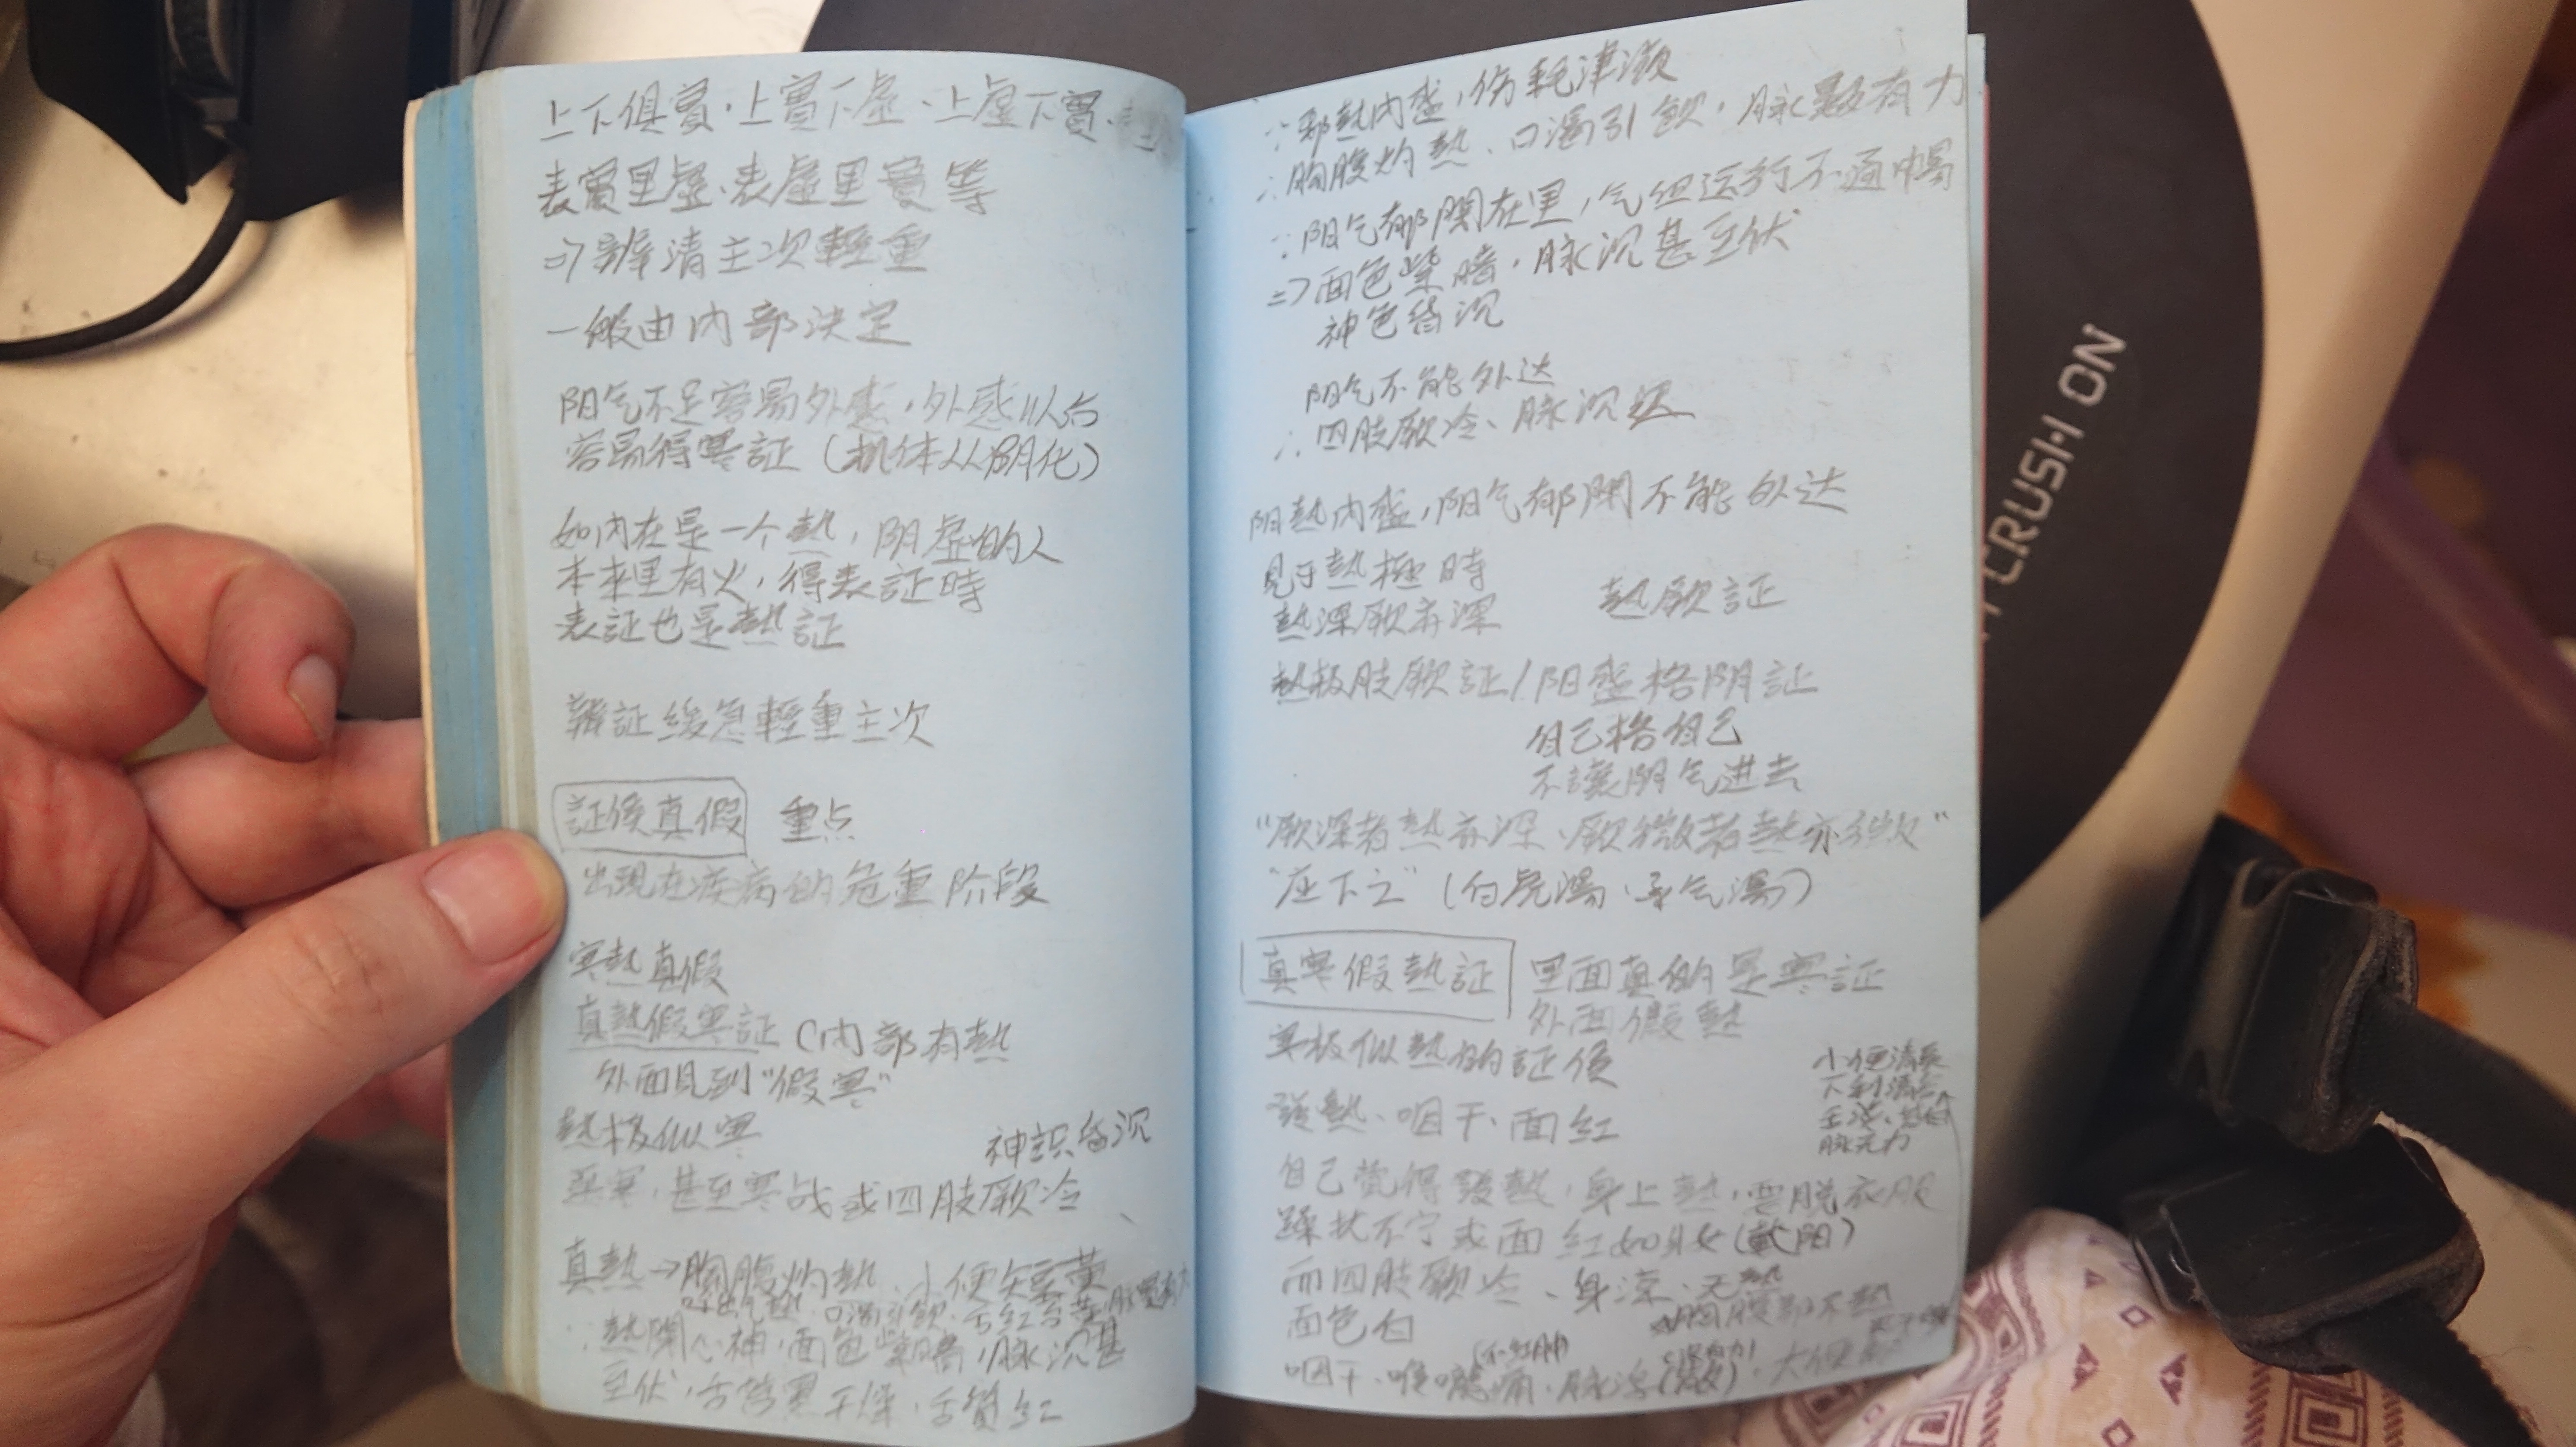 上下俱實、上實下虛、上虛下實、
表實里虛、表虛里實等
⇒辨清主次輕重
一般由内部決定
阳气不足容易外感,外感以后
容易得寒証(机体从阴化)
如内在是一个熱,阴虛的人
本来里有火,得表証時
表証也是熱証
辨証緩急輕重主次
証候真假 重点
出現在疾病的危重阶段
寒熱真假
真熱假寒証(内部有熱
外面見到"假寒"
熱极似寒
神识昏沉
恶寒,甚至寒战或四肢厥冷
真熱→胸腹灼熱、小便短黄
口渴引飲、舌红苔黄
∴熱閉心神,面色紫暗,脉沉甚
至伏,舌苔黑干燥,舌質红
∵邪熱内盛,伤耗津液
∴胸腹灼熱、口渴引飲,脉數有力
∵阳气郁閉在里,气但运行不通暢
⇒面色紫暗,脉沉甚至伏
神色昏沉
阳气不能外达
∴四肢厥冷、脉沉迟
阳熱内盛,阳气郁閉不能外达
見于熱極時
熱深厥亦深 熱厥証
熱极肢厥証/阳盛格阴証
自己格自己
不讓阴气进去
"厥深者熱亦深、厥微者熱亦微"
"应下之"(白虎湯、承气湯)
真寒假熱証 里面真的是寒証
外面假熱
寒极似熱的証候
小便清長
脉无力
發熱、咽干、面红
自己覺得發熱,身上熱,要脱衣服
躁扰不宁或面红如妆(戴阳)
而四肢厥冷、身涼、无熱
胸腹部不熱
面色白
(不红肿)
咽干、喉嚨痛、脉浮(數)、大便
CRUSH ON